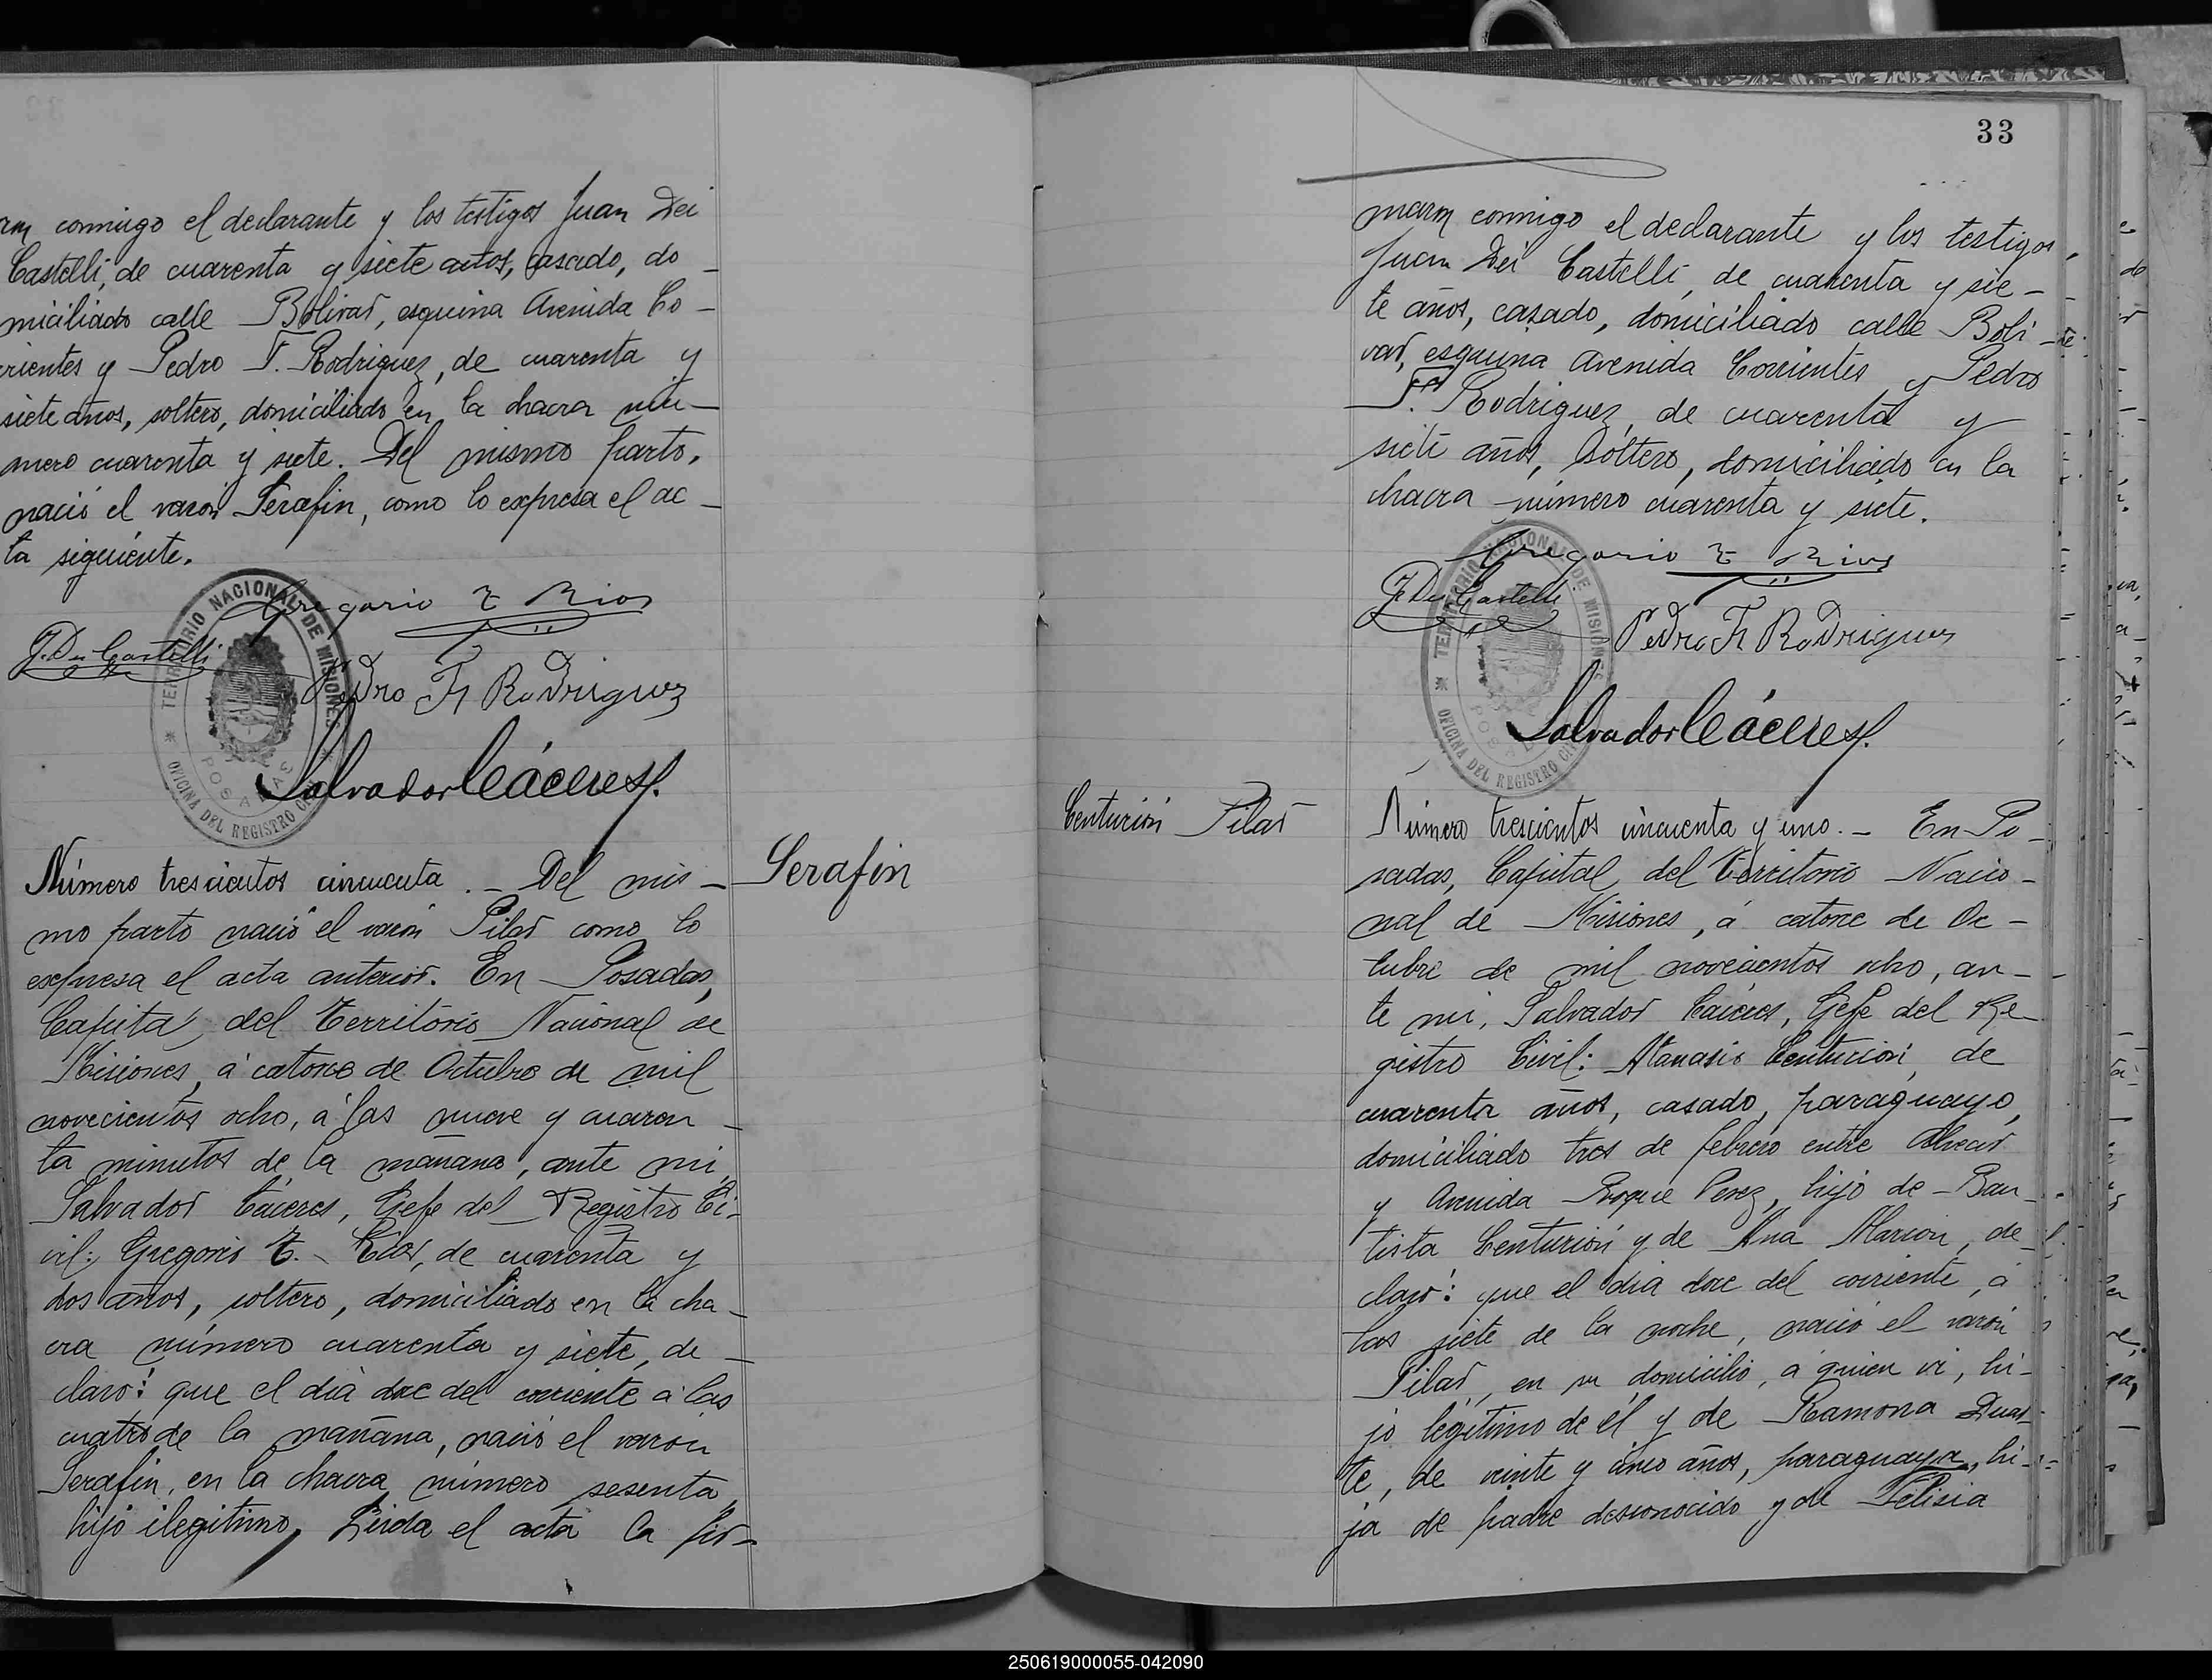 conmigo el declarante y los testigos Juan Dei
Castelli, de cuarenta y siete años, casado, do_
miciliado calle Bolivar, esquina Avenida Co_
rrientes y Pedro F. Rodriguez, de cuarenta y
siete años, soltero, domiciliado en la chacra nú_
mero cuarenta y siete. Del mismo parto,
nació el varón Serafin, como lo expresa el ac_
ta siguiente.
Gregorio T Rios
J. Dei Castelli
Pedro F Rodriguez
Salvador Cáceres
TERRITORIO NACIONAL DE MISIONES
POSADAS
OFICINA DEL REGISTRO CIVIL
Serafin
Número trescientos cincuenta._ Del mis_
mo parto nació el varón Pilar como lo
expresa el acta anterior. En Posadas,
Capital del Territorio Nacional de
Misiones, á catorce de Octubre de mil
novecientos ocho, á las nueve y cuaren_
ta minutos de la mañana, ante mi,
Salvador Cáceres, Gefe del Registro Ci_
vil: Gregorio T. Rios, de cuarenta y
dos años, soltero, domiciliado en la cha_
cra número cuarenta y siete, de_
claró: que el dia doce del corriente á las
cuatro de la mañana, nació el varon
Serafin, en la chacra número sesenta,
hijo ilegitimo, Leida el acta la fir_
33
maron conmigo el declarante y los testigos,
Juan Dei Castelli, de cuarenta y sie_
te años, casado, domiciliado calle Boli_
var, esquina Avenida Corrientes y Pedro
F. Rodriguez, de cuarenta y
siete años, soltero, domiciliado en la
chacra número cuarenta y siete.
Gregorio T Rios
J. Dei Castelli
Pedro F Rodriguez
Salvador Cáceres
TERRITORIO NACIONAL DE MISIONES
POSADAS
OFICINA DEL REGISTRO CIVIL
Centurión Pilar
Número trescientos cincuenta y uno._ En Po_
sadas, Capital del Territorio Nacio_
nal de Misiones, á catorce de Oc_
tubre de mil novecientos ocho, an_
te mi, Salvador Cáceres, Gefe del Re_
gistro Civil: Atanasio Centurión, de
cuarenta años, casado, paraguayo,
domiciliado tres de febrero entre Alvear
y Avenida Roque Perez, hijo de Bau_
tista Centurión y de Ana Marion, de_
claró: que el dia doce del corriente, á
las siete de la noche, nació el varón
Pilar, en su domicilio, á quien vi, hi_
jo legitimo de él y de Ramona Duar_
te, de veinte y cinco años, paraguaya, hi_
ja de padre desconocido y de Felisia
250619000055-042090